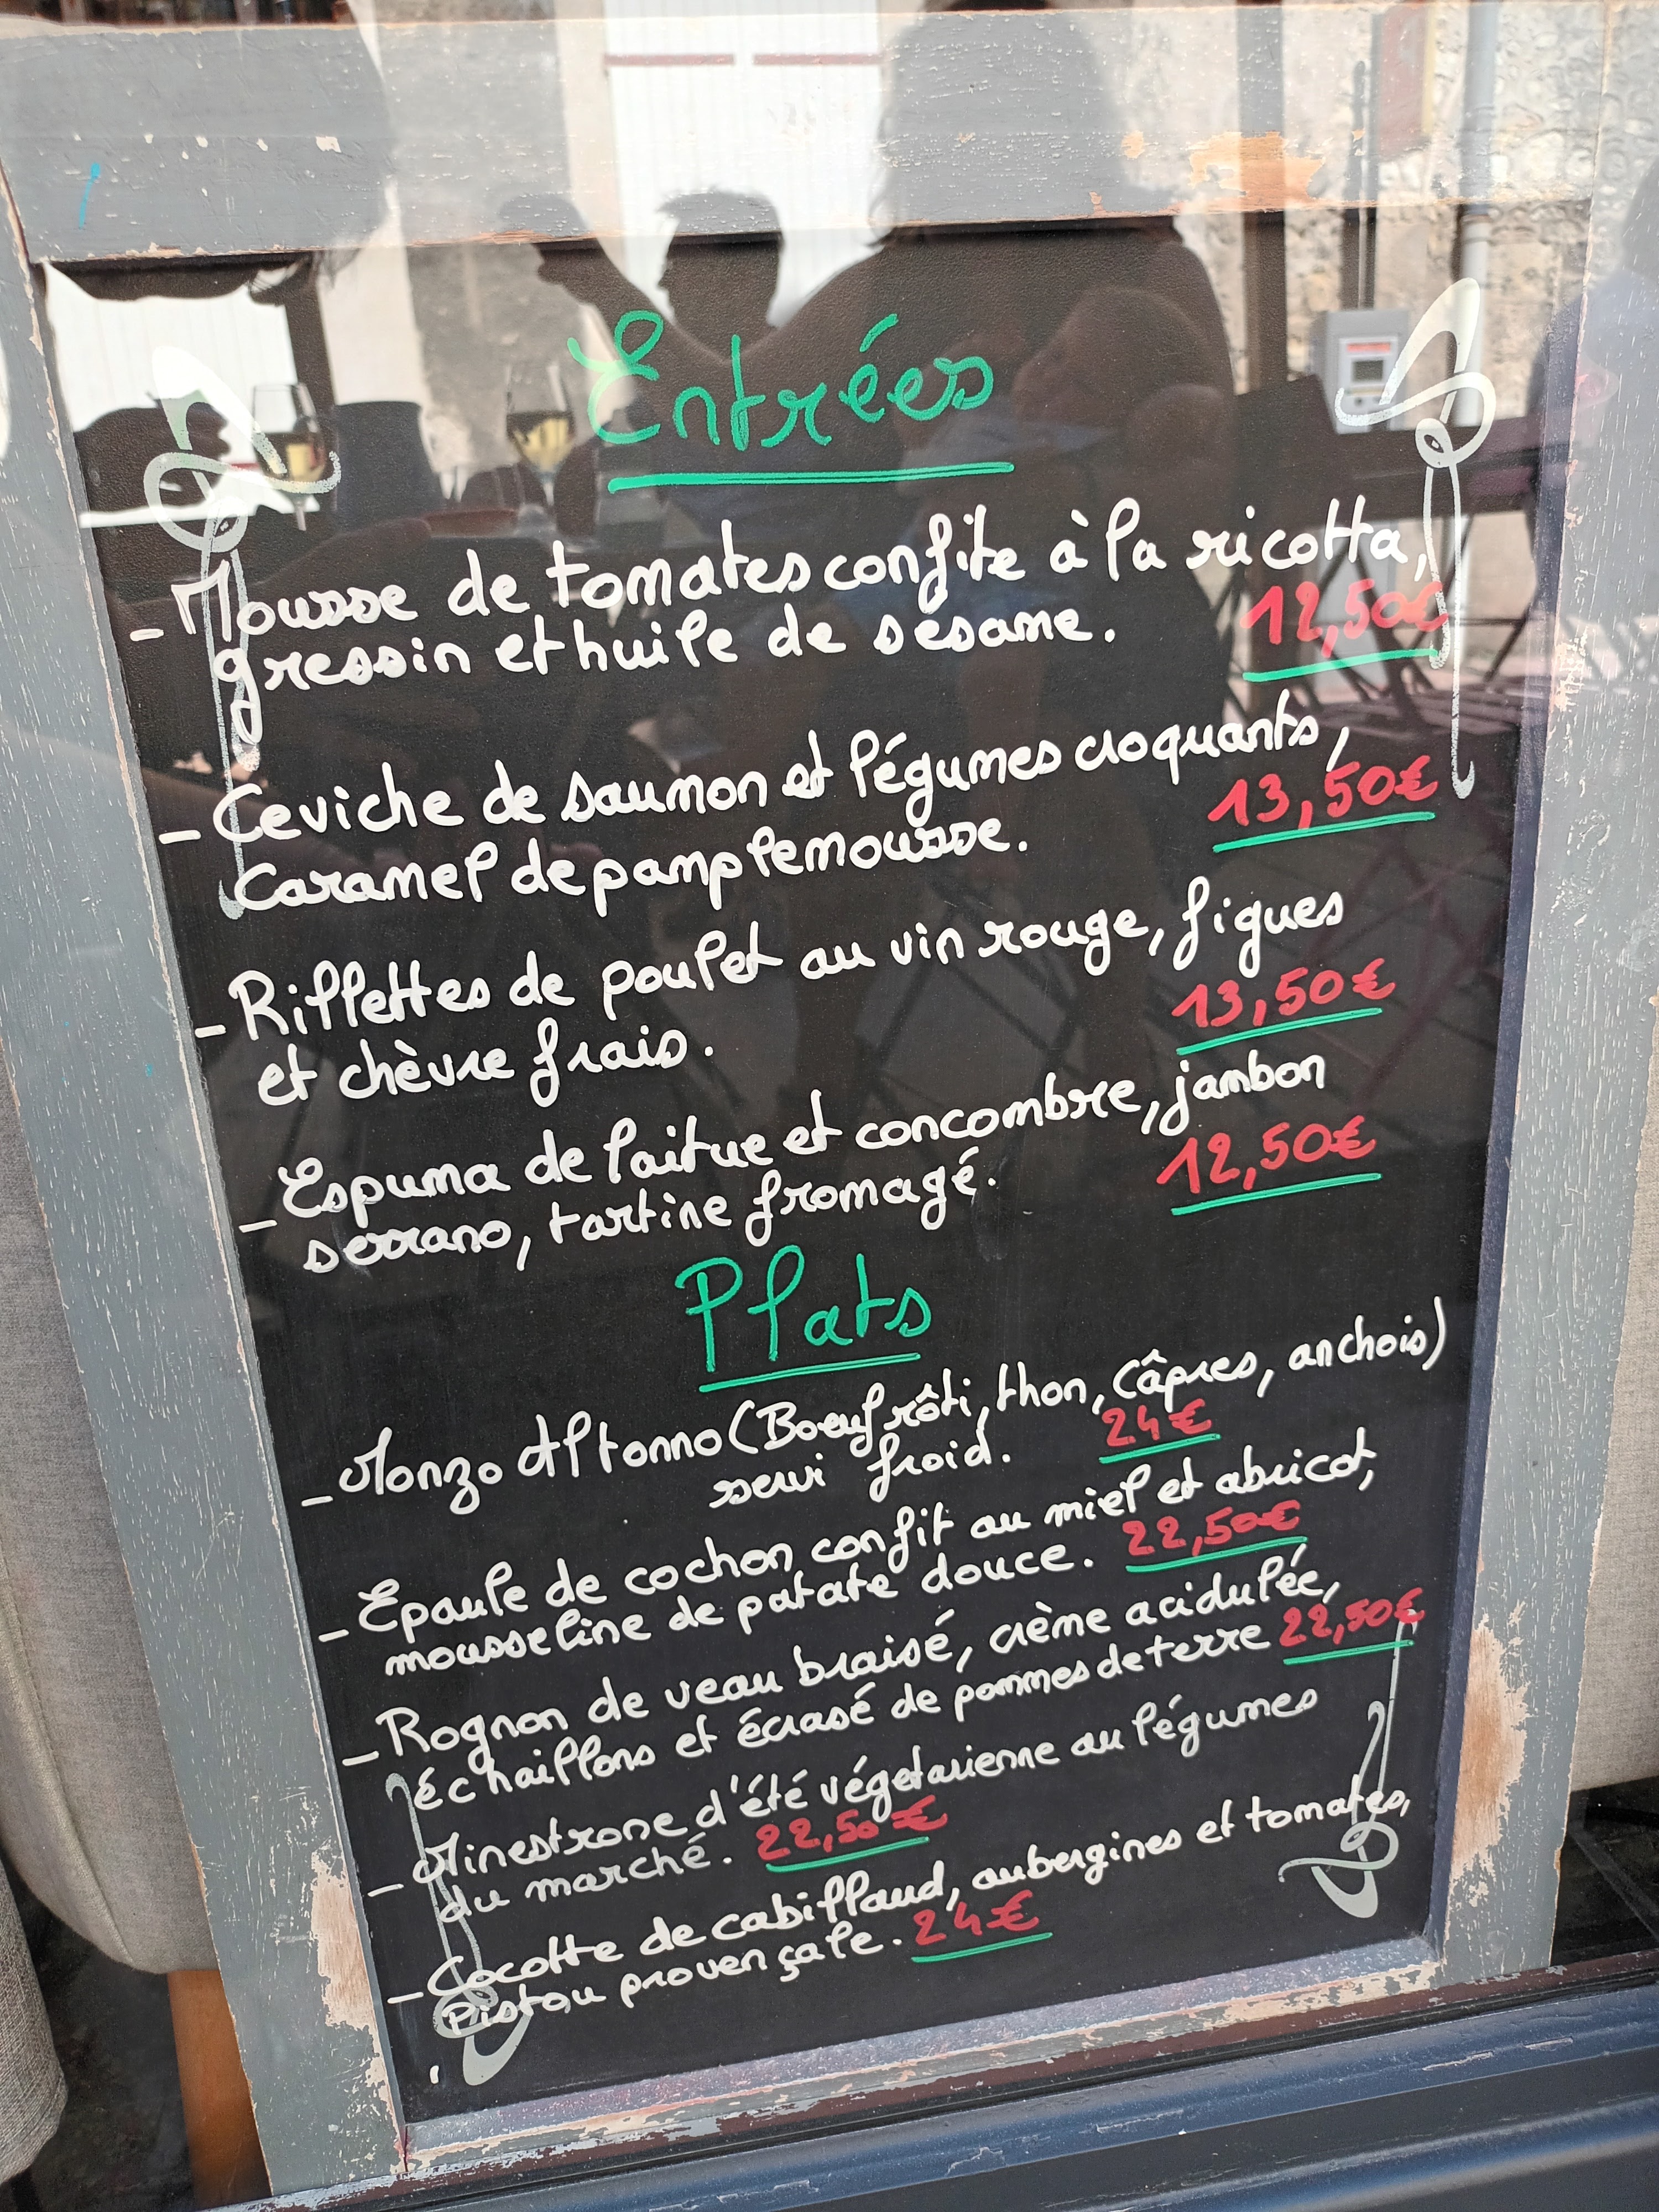 Entrées
- Mousse de tomates confite à la ricotta,
gressin et huile de sésame. 12,50€
- Ceviche de saumon et légumes croquants,
Caramel de pamplemousse. 13,50€
- Rillettes de poulet au vin rouge, figues
et chèvre frais. 13,50€
- Espuma de laitue et concombre, jambon
serrano, tartine fromagé. 12,50€
Plats
- Monzo Al tonno (Boeuf rôti, thon, câpres, anchois)
servi froid. 24€
- Epaule de cochon confit au miel et abricot,
mousseline de patate douce. 22,50€
- Rognon de veau braisé, crème acidulée,
échaillons et écrasé de pommes de terre 22,50€
- Minestrone d'été végetarienne au légumes
du marché. 22,50€
- Cocotte de cabillaud, aubergines et tomates,
Pistou provençale. 24€